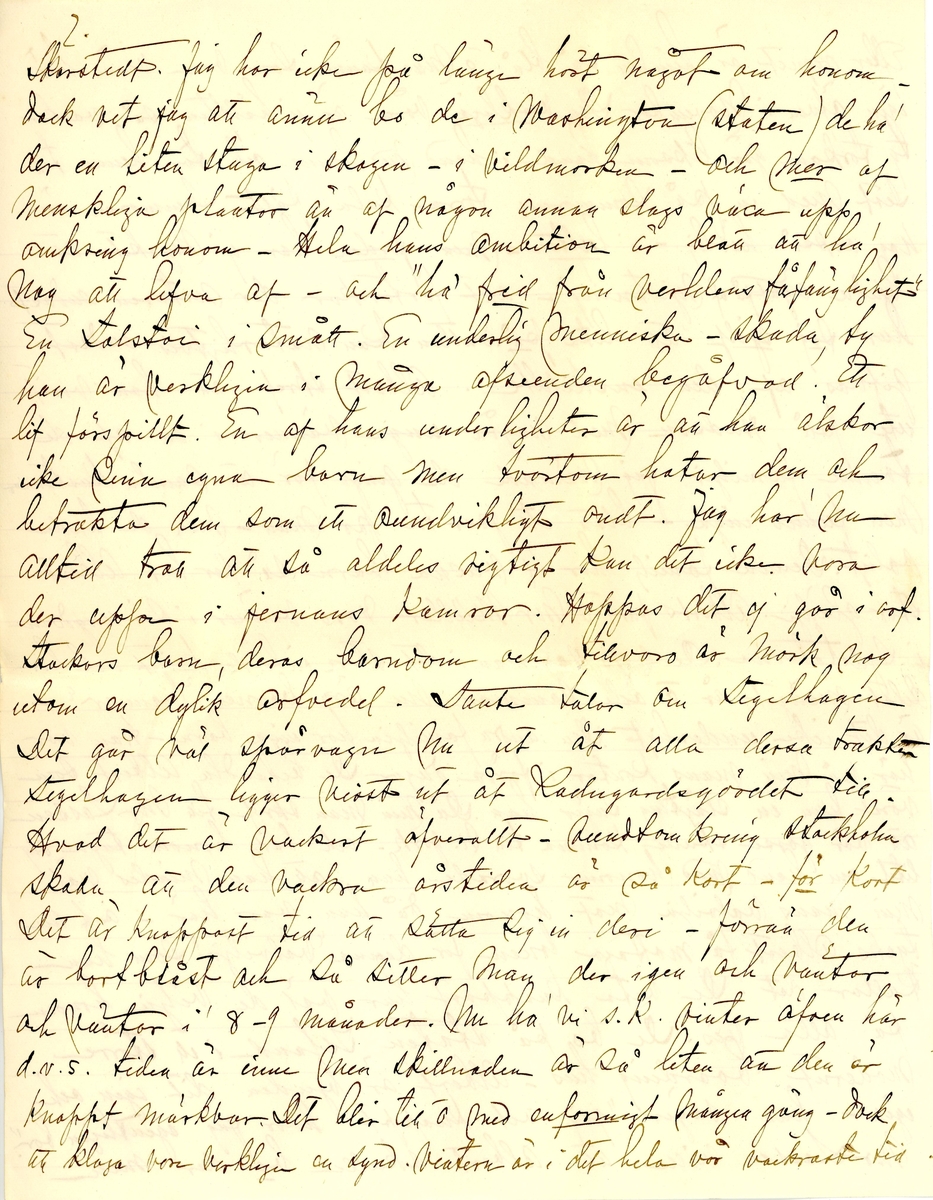 2.
Skarstedt. Jag har icke på länge hört något om honom –
dock vet jag att ännu bo de i Washington (staten) de ha'
der en liten stuga i skogen – i vildmarken – och mer af
menskliga plantor än af någon annan slags växa upp
omkring honom – Hela hans ambition är blott att ha'
nog att lefva af – och "ha' frid från verldens fåfänglighet"
En Tolstoi i smått. En underlig menniska – skada, ty
han är verkligen i många afseenden begåfvad. Ett
lif förspillt. En af hans underligheter är att han älskar
icke sina egna barn men tvärtom hatar dem och
betrakta dem som ett oundvikligt ondt. Jag har nu
alltid trott att så aldeles rigtigt kan det icke vara
der uppe i jernans kamrar. Hoppas det ej går i arf.
Stackars barn, deras barndom och tillvaro är mörk nog
utom en dylik arfvedel. Tante talar om Tegelhagen
Det går väl spårvagn nu ut åt alla dessa trakter
Tegelhagen ligger visst ut åt Ladugardsgärdet till.
Hvad det är vackert öfverallt – rundtomkring Stockholm
skada att den vackra årstiden är så kort – för kort
Det är knappast tid att sätta sig in deri – förrän den
är bortblåst och så sitter man der igen och väntar
och väntar i 8–9 månader. Nu ha' vi s.k. vinter äfven här
d.v.s. tiden är inne men skillnaden är så liten att den är
knappt märkbar. Det blir till o med enformigt mången gång – dock
att klaga vore verkligen en synd. Vintern är i det hela vår vackraste tid.